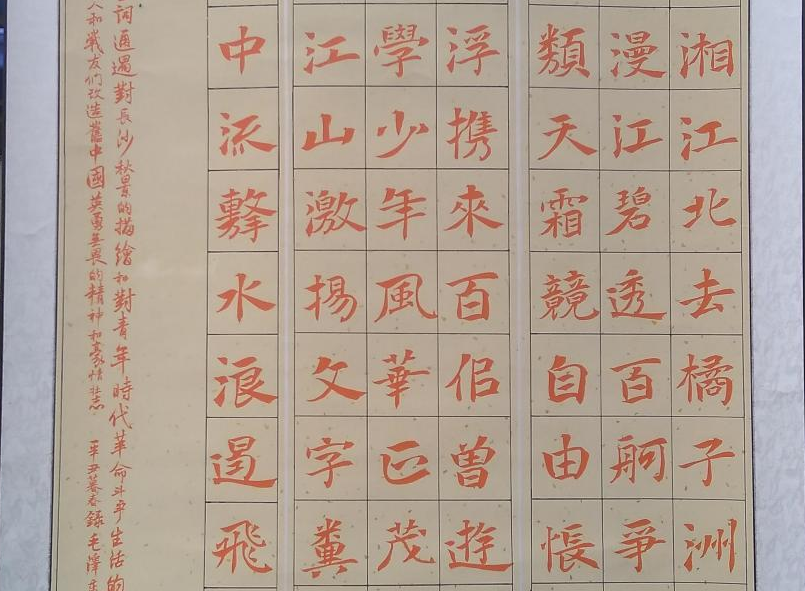 湘江北去橘子洲
漫江碧透百舸爭
類天霜競自由悵
浮携來百侶曾遊
學少年風華正茂
江山激揚文字糞
中流擊水浪遏飛
詞通過對長沙秋景的描繪和對青年時代革命斗爭生活的
人和戰友們改造舊中國英勇無畏的精神和豪情壯志 辛丑暮春錄毛澤東